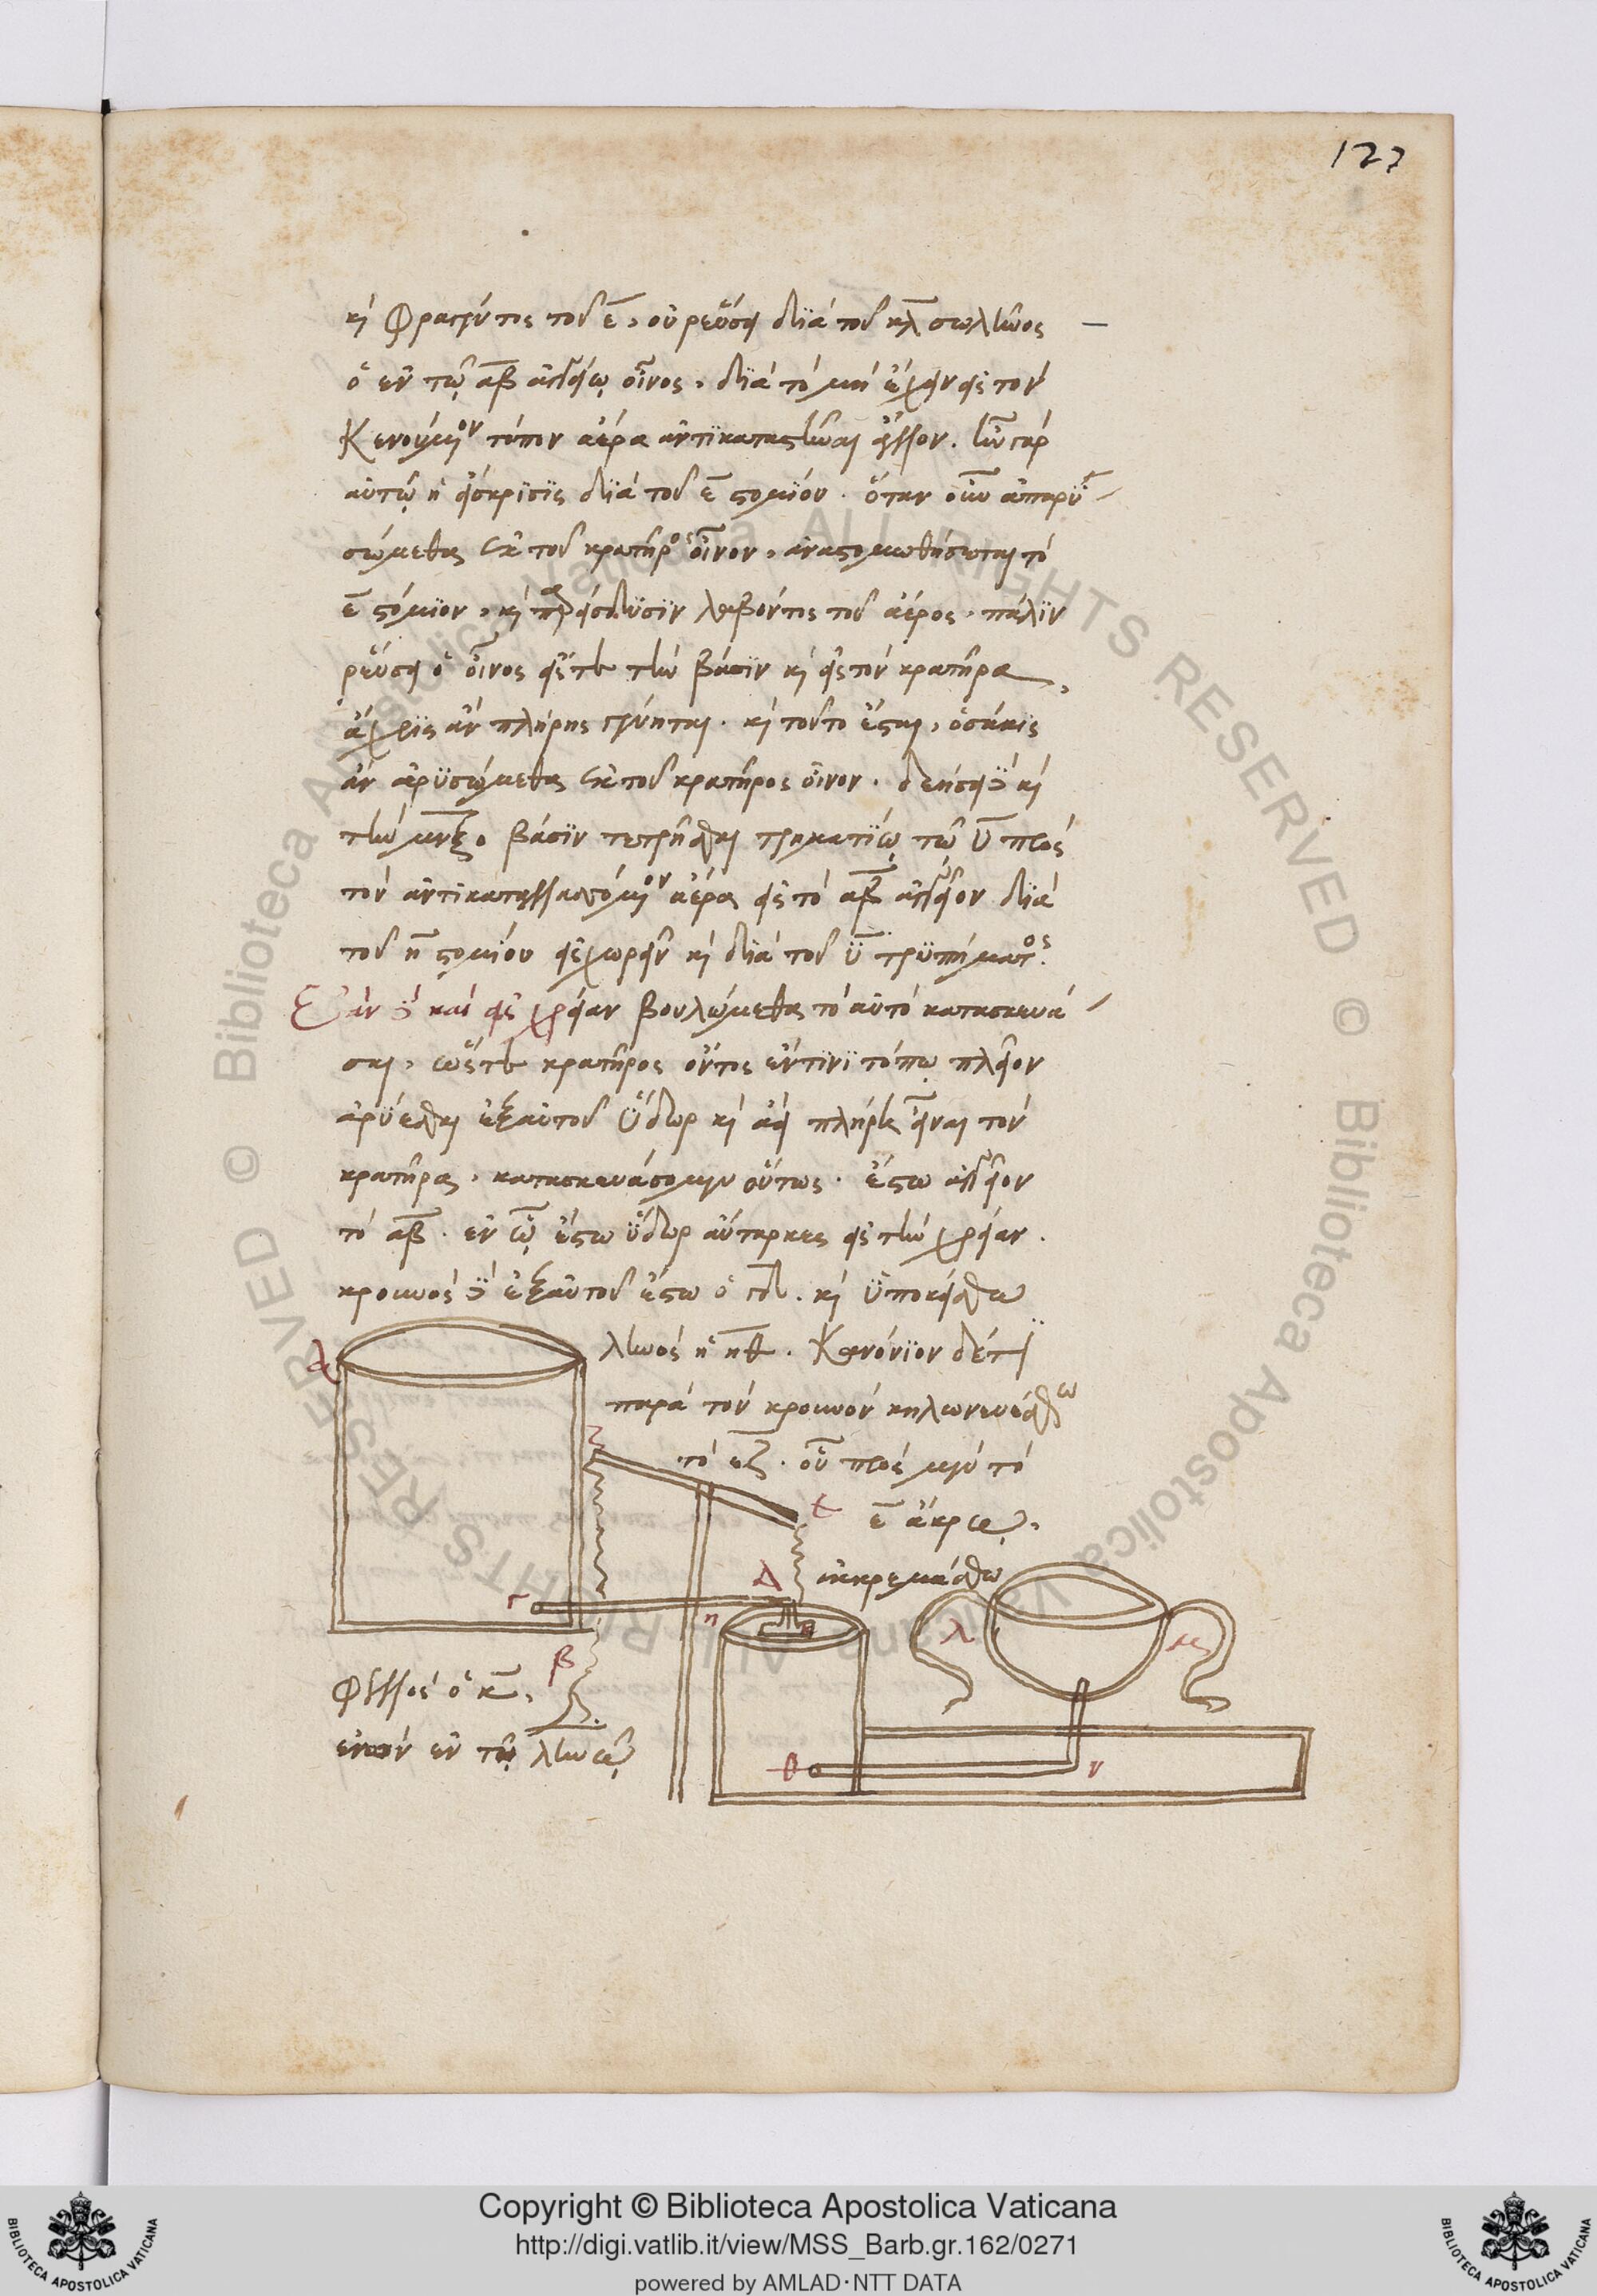 127
καὶ φραγέντος τοῦ ε, οὐ ρεύσει διὰ τοῦ κλ σωλῆνος
ὁ ἐν τῷ αβ ἀγγείῳ οἶνος, διὰ τὸ μὴ ἔχειν εἰς τὸν
κενούμενον τόπον ἀέρα ἀντικαταστῆναι ἕτερον. ἦν γὰρ
αὐτῷ ἡ εἴσκρισις διὰ τοῦ ε στομίου. ὅταν οὖν ἀπαρυ
σώμεθα ἐκ τοῦ κρατῆρος οἶνον, ἀναστομωθήσεται τὸ
ε στόμιον, καὶ παρείσδυσιν λαβόντος τοῦ ἀέρος, πάλιν
ρεύσει ὁ οἶνος εἴς τε τὴν βάσιν καὶ εἰς τὸν κρατῆρα,
ἄχρις ἂν πλήρης γένηται. καὶ τοῦτο ἔσται, ὁσάκις
ἂν ἀρυσώμεθα ἐκ τοῦ κρατῆρος οἶνον. δεήσει δὲ καὶ
τὴν μνξο βάσιν τετρῆσθαι τρηματίῳ τῷ υ πρὸς
τὸν ἀντικαταλλασσόμενον ἀέρα εἰς τὸ αβ ἀγγεῖον διὰ
τοῦ η στομίου εἰσχωρεῖν καὶ διὰ τοῦ υ τρυπήματος.
Ἐὰν δὲ καὶ εἰς χρείαν βουλώμεθα τὸ αὐτὸ κατασκευά
σαι, ὥστε κρατῆρος ὄντος ἔν τινι τόπῳ πλεῖον
ἀρύεσθαι ἐξ αὐτοῦ ὕδωρ καὶ ἀεὶ πλήρη εἶναι τὸν
κρατῆρα, κατασκευάσομεν οὕτως. ἔστω ἀγγεῖον
τὸ αβ. ἐν ᾧ ἔστω ὕδωρ αὔταρκες εἰς τὴν χρείαν.
κρουνὸς δὲ ἐξ αὐτοῦ ἔστω ὁ γδ. καὶ ὑποκείσθω
ληνὸς ἡ ηθ. κανόνιον δέ τι
παρὰ τὸν κρουνὸν κηλωνευέσθω
τὸ εζ. οὗ πρὸς μὲν τὸ
ε ἄκρῳ,
ἐκκρεμάσθω
φελλὸς ὁ κ,
ἐνὼν ἐν τῇ ληνῷ
α
ζ
ε
Δ
γ
η
κ
β
λ
μ
θ
ν
Copyright © Biblioteca Apostolica Vaticana
http://digi.vatlib.it/view/MSS_Barb.gr.162/0271
powered by AMLAD·NTT DATA